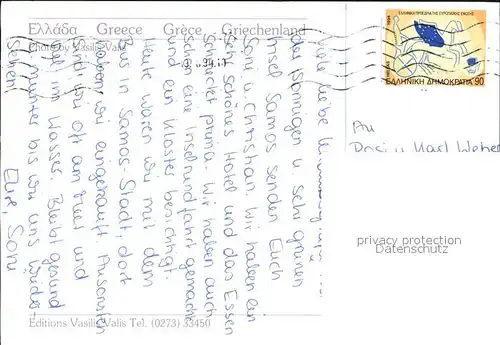 Ελλάδα Greece Grèce Griechenland
Photo by Vasilis Valis
ΕΛΛΗΝΙΚΗ ΠΡΟΕΔΡΙΑ ΤΗΣ ΕΥΡΩΠΑΪΚΗΣ ΕΝΩΣΗΣ
1994
HELLAS
ΕΛΛΗΝΙΚΗ ΔΗΜΟΚΡΑΤΙΑ 90
Viele liebe
der sonnigen u. sehr grünen
Insel Samos senden Euch
Soni u Christian. Wir haben ein
sehr schönes Hotel und das Essen
schmeckt prima. Wir haben auch
schon eine Inselrundfahrt gemacht
und ein Kloster besichtigt.
Heute waren wir mit dem
Bus in Samos-Stadt, dort
haben wir eingekauft. Ansonsten
sind wir oft am Meer und
viel im Wasser. Bleibt gesund
u. munter bis wir uns wieder-
sehen!
Eure Soni
An
u Karl
privacy protection
Datenschutz
Editions Vasilis Valis Tel. (0273) 33450